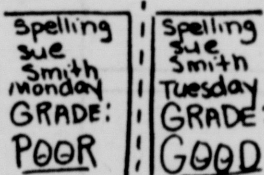 Spelling
Sue
Smith
Monday
GRADE:
POOR
Spelling
Sue
Smith
Tuesday
GRADE:
GOOD